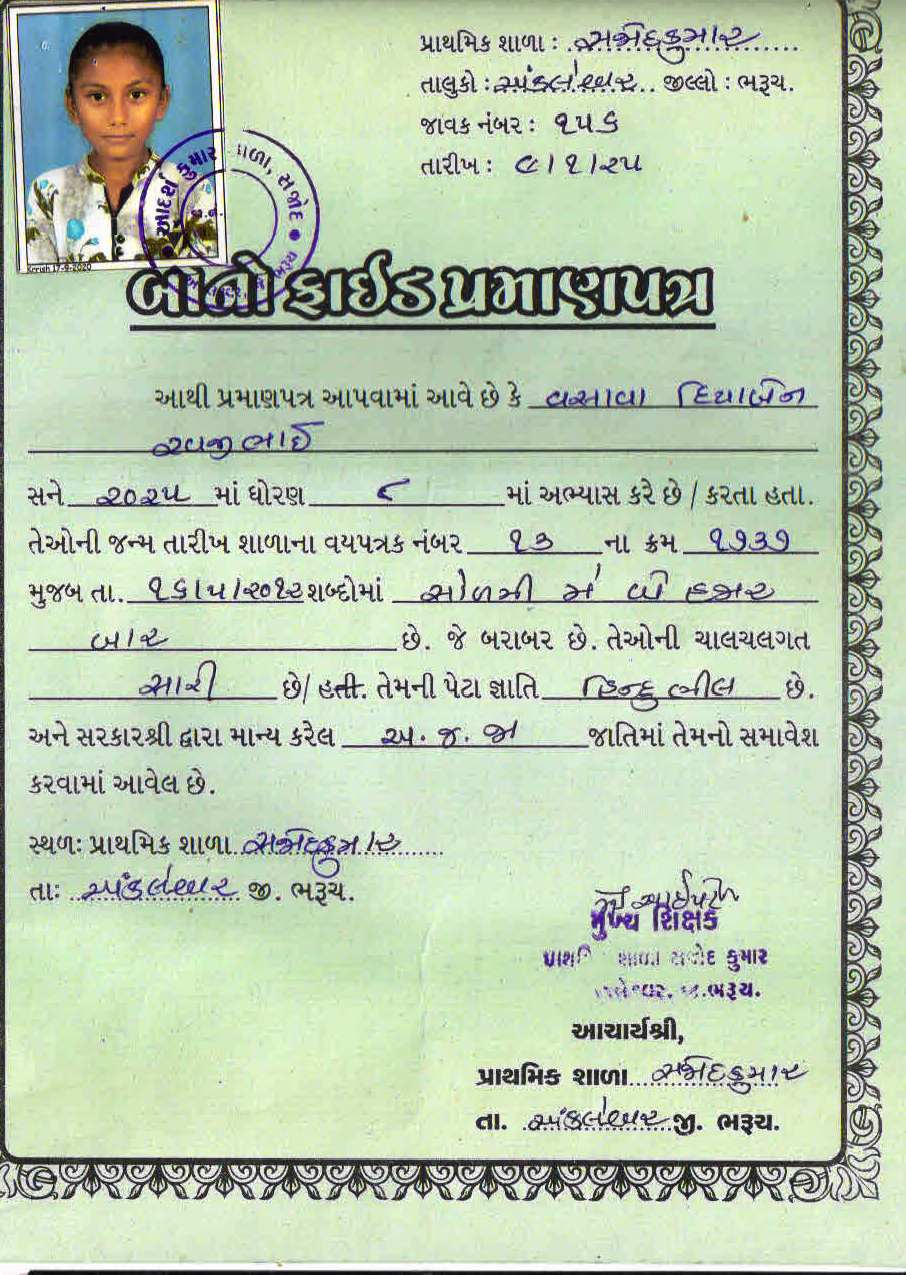 પ્રાથમિક શાળા : સજોદકુમાર
તાલુકો : અંકલેશ્વર જીલ્લો : ભરૂચ.
જાવક નંબર : ૧૫૬
તારીખ : ૯/૧/૨૫
આદર્શ કુમાર શાળા, સજોદ
17-9-2020
બોનોફાઈડ પ્રમાણપત્ર
આથી પ્રમાણપત્ર આપવામાં આવે છે કે વસાવા દિયાબેન
રવજીભાઈ
સને ૨૦૨૫ માં ધોરણ ૮ માં અભ્યાસ કરે છે / કરતા હતા.
તેઓની જન્મ તારીખ શાળાના વયપત્રક નંબર ૧૩ ના ક્રમ ૧૭૩૭
મુજબ તા. ૧૬/૫/૨૦૧૨ શબ્દોમાં સોળમી મે બે હજાર
બાર છે. જે બરાબર છે. તેઓની ચાલચલગત
સારી છે/ હતી. તેમની પેટા જ્ઞાતિ હિન્દુ ભીલ છે.
અને સરકારશ્રી દ્વારા માન્ય કરેલ અ. જ. જા જાતિમાં તેમનો સમાવેશ
કરવામાં આવેલ છે.
સ્થળઃ પ્રાથમિક શાળા સજોદકુમાર
તાઃ અંકલેશ્વર જી. ભરૂચ.
મુખ્ય શિક્ષક
શાળા સજોદ કુમાર
ભરૂચ.
આચાર્યશ્રી,
પ્રાથમિક શાળા સજોદકુમાર
તા. અંકલેશ્વર જી. ભરૂચ.